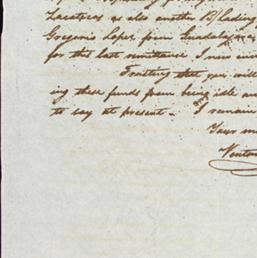 Zacatecas as also another B/lading
Gregorio Lopez from Guadalaxa
for this last remittance I now
Trusting that you will
ing these funds from being idle
to say at present. I remain
Your